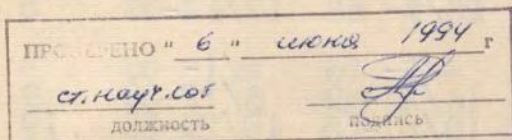 ПРОВЕРЕНО " 6 " июня 1994 г
ст. науч. сот
должность подпись